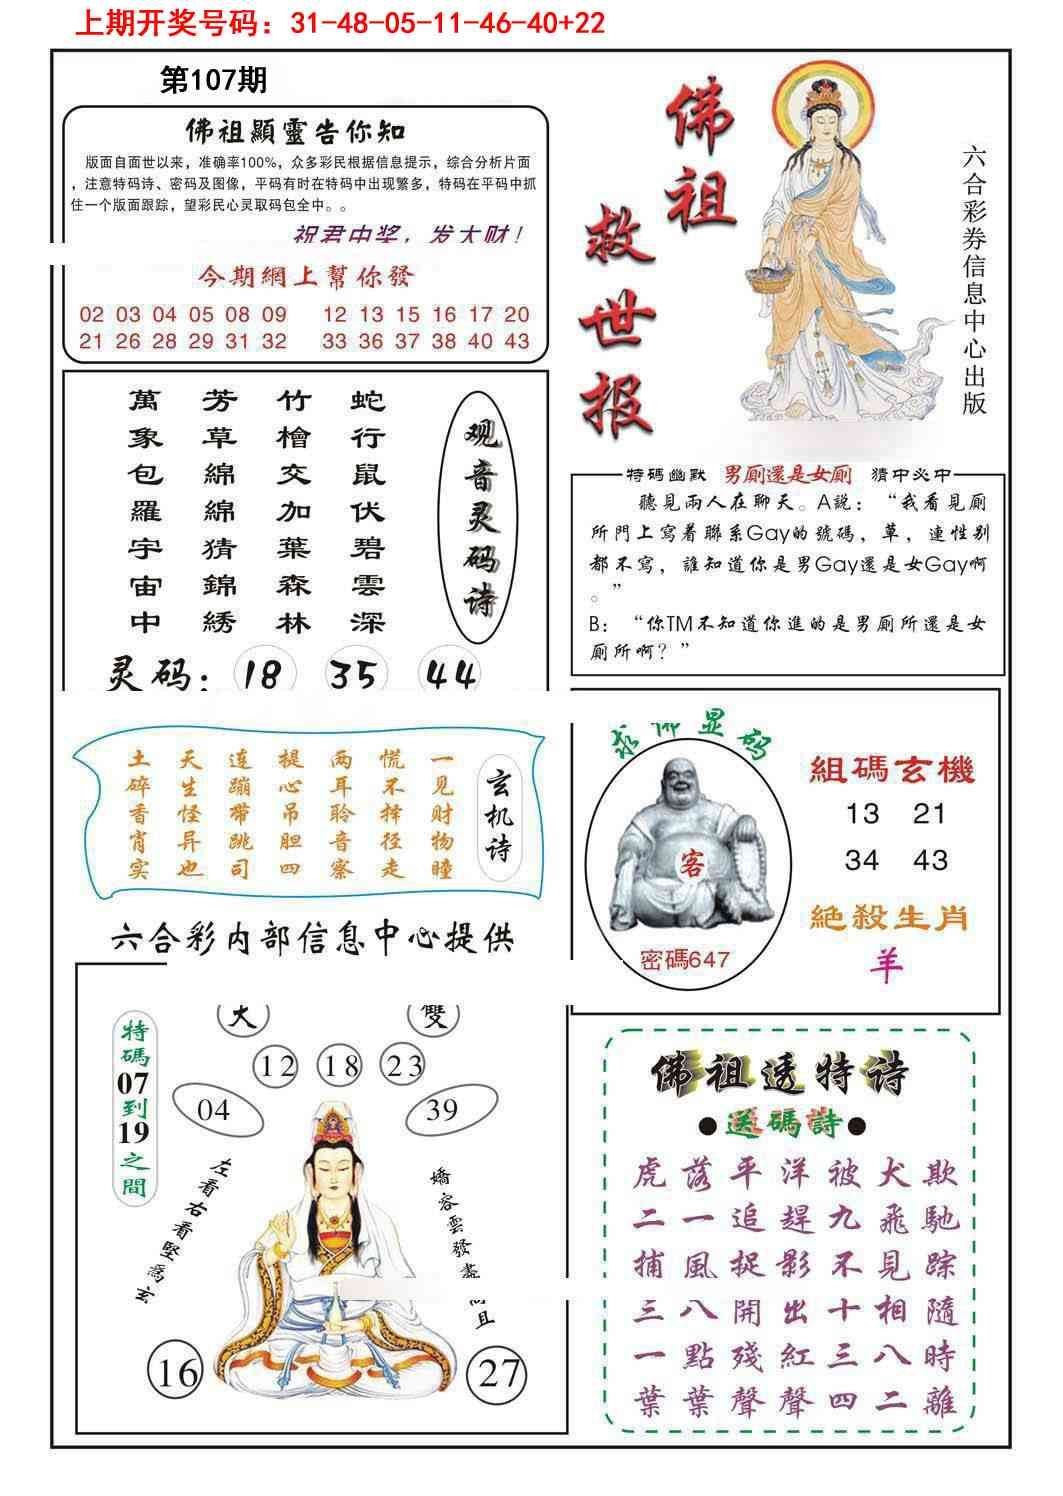 上期开奖号码：31-48-05-11-46-40+22
第107期
佛祖顯靈告你知
版面自面世以来，准确率100%，众多彩民根据信息提示，综合分析片面
，注意特码诗、密码及图像，平码有时在特码中出现繁多，特码在平码中抓
住一个版面跟踪，望彩民心灵取码包全中。。
祝君中奖，发大财！
今期網上幫你發
02 03 04 05 08 09 12 13 15 16 17 20
21 26 28 29 31 32 33 36 37 38 40 43
佛祖
救世报
六合彩券信息中心出版
萬 芳 竹 蛇
象 草 檜 行
包 綿 交 鼠
羅 綿 加 伏
宇 猜 葉 碧
宙 錦 森 雲
中 綉 林 深
观音灵码诗
灵码：18 35 44
特碼幽默 男厠還是女厠 猜中必中
聽見兩人在聊天。A説：“我看見厠
所門上寫着聯系Gay的號碼，草，連性别
都不寫，誰知道你是男Gay還是女Gay啊
。”
B：“你TM不知道你進的是男厠所還是女
厠所啊？”
土 天 连 提 两 慌 一
碎 生 蹦 心 耳 不 见
香 怪 带 吊 聆 择 财
肯 异 跳 胆 音 径 物
实 也 司 四 察 走 瞳
玄机诗
六合彩内部信息中心提供
求佛显码
客
密碼647
組碼玄機
13 21
34 43
絶殺生肖
羊
特碼07到19之間
大 雙
12 18 23
04 39
左看右看堅爲玄
嬌容雲發盡
且
16 27
佛祖透特诗
●送碼詩●
虎落平洋被犬欺
二一追趕九飛馳
捕風捉影不見踪
三八開出十相隨
一點殘紅三八時
葉葉聲聲四二離